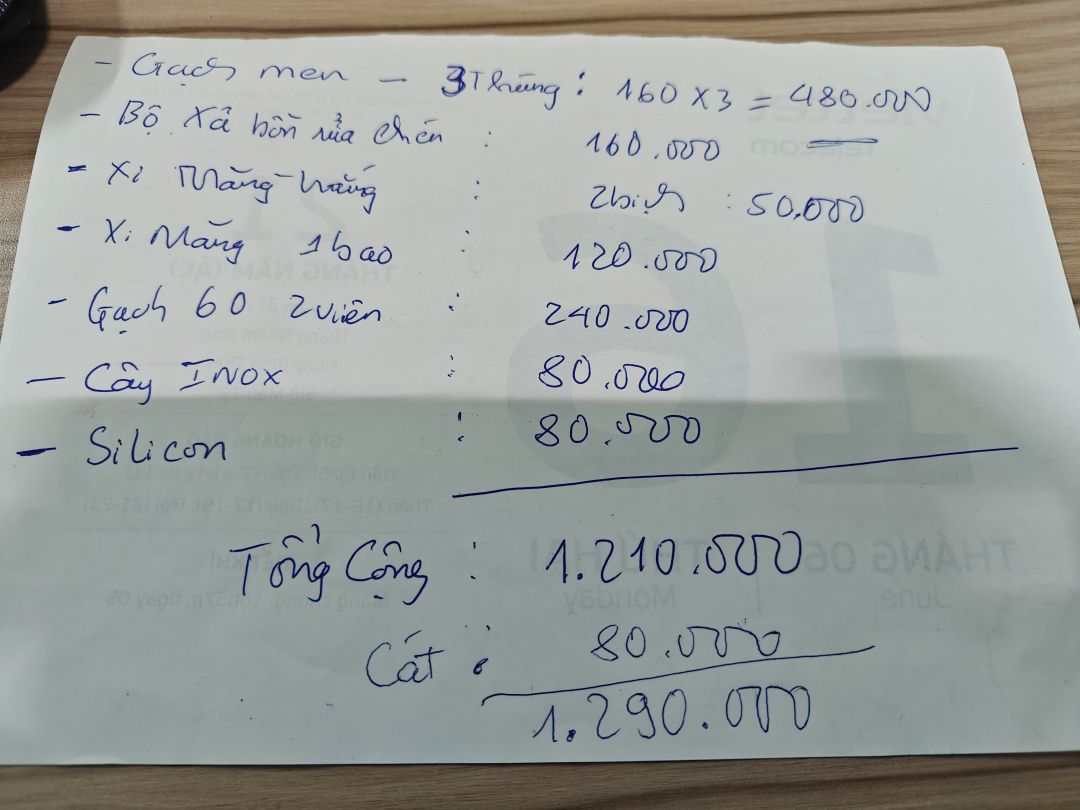 - Gạch men - 3 Thùng : 160 x 3 = 480.000
- Bộ Xả bồn rửa chén : 160.000
- Xi Măng trắng : 2 bịch : 50.000
- Xi Măng 1 bao : 120.000
- Gạch 60 2 viên : 240.000
- Cây INOX : 80.000
- Silicon : 80.000
Tổng Cộng : 1.210.000
Cát : 80.000
1.290.000